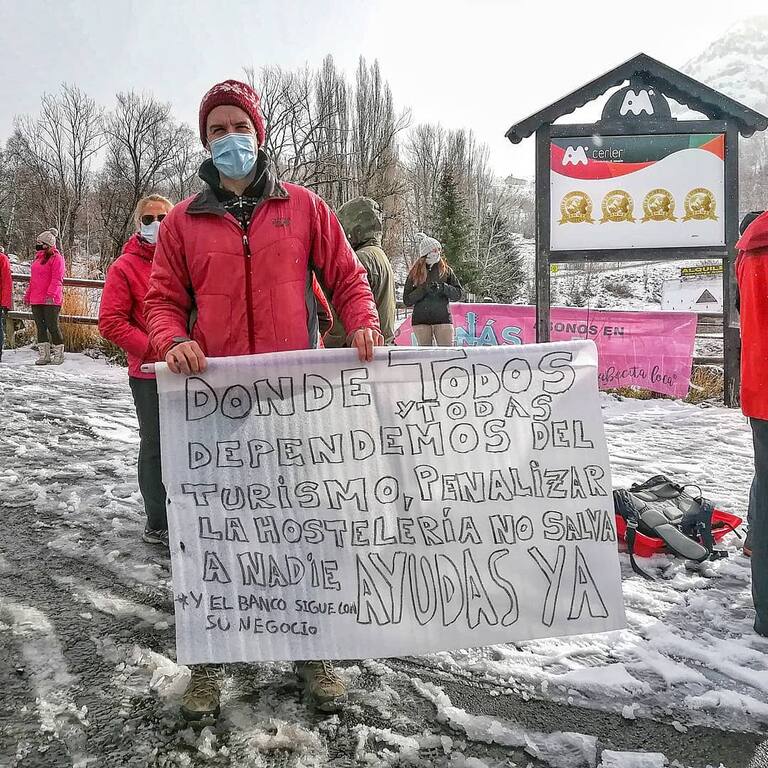 cerler
ALQUILE
NÁS
BONOS EN
abocita loca"
DONDE TODOS
Y TODAS
DEPENDEMOS DEL
TURISMO, PENALIZAR
LA HOSTELERÍA NO SALVA
A NADIE AYUDAS YA
*Y EL BANCO SIGUE CON
SU NEGOCIO